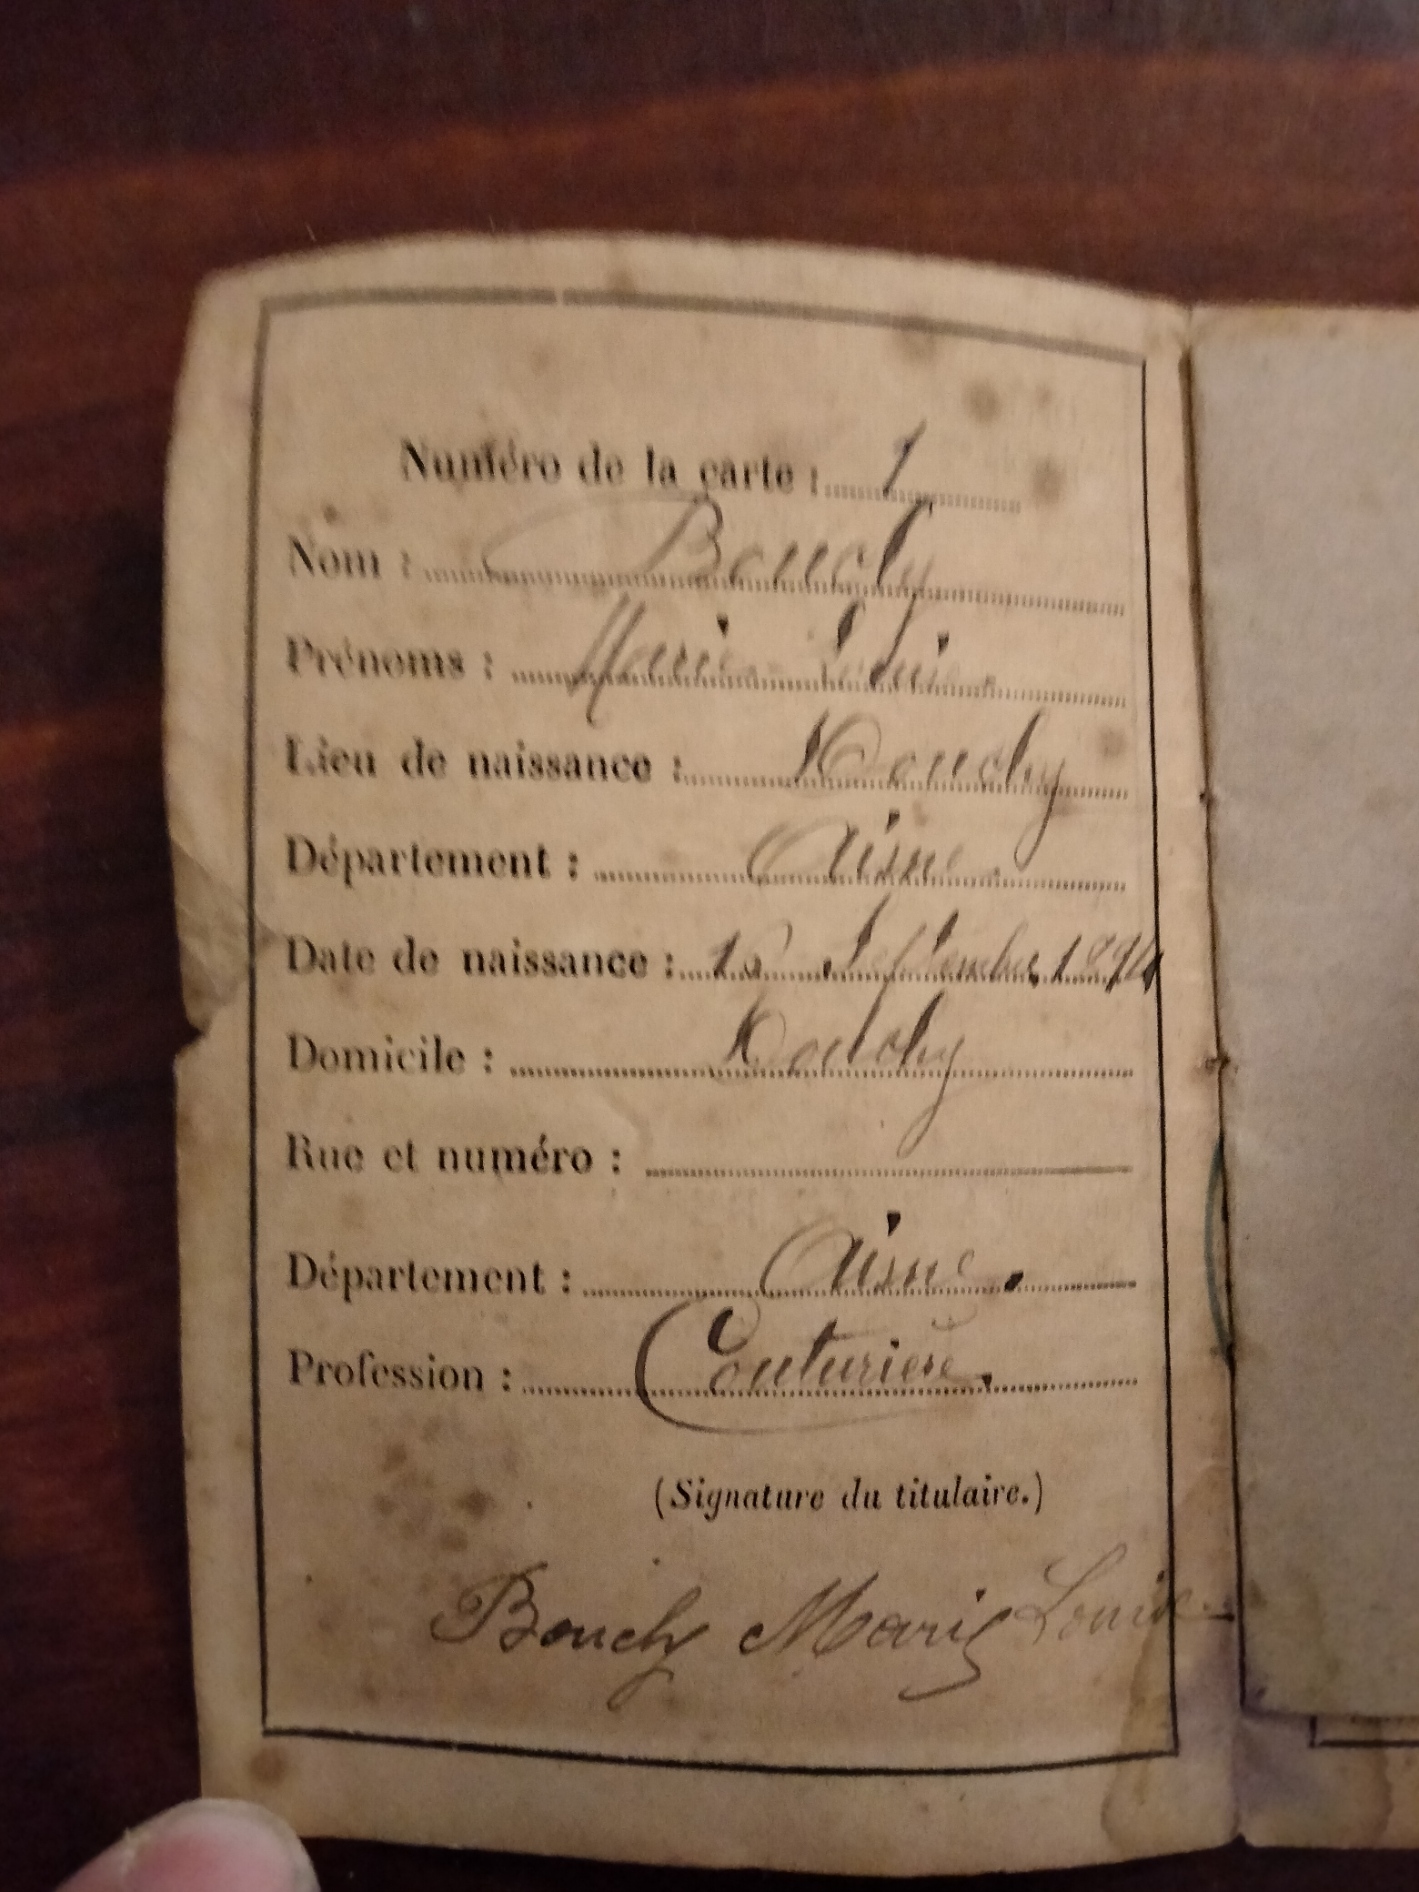 Numéro de la carte : 1
Nom : Bouchy
Prénoms : Marie Louise.
Lieu de naissance : Douchy
Département : Aisne.
Date de naissance : 16 Septembre 1894
Domicile : Douchy
Rue et numéro :
Département : Aisne.
Profession : Couturière.
(Signature du titulaire.)
Bouchy Marie Louise